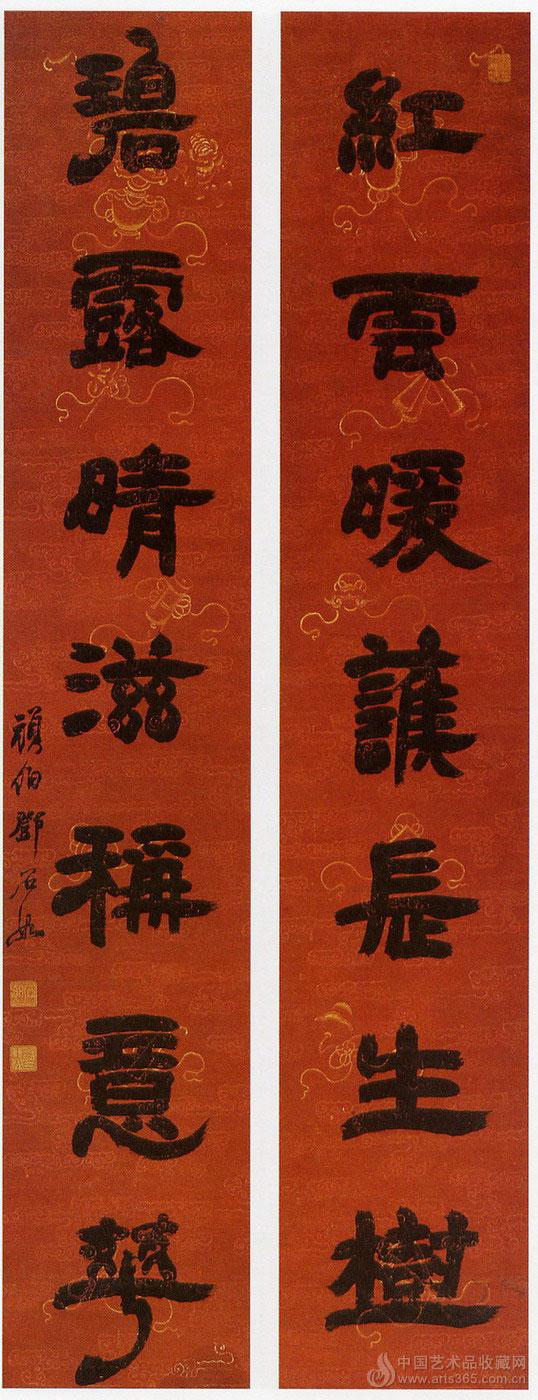 紅雲暖護長生樹
碧露晴滋稱意華
頑伯鄧石如
中国艺术品收藏网
www.arts365.com.cn